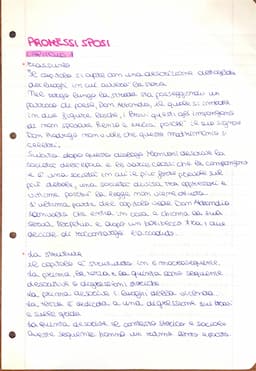 PROMESSI SPOSI
CAPITOLO 1
• Riassunto
Il capitolo si apre con una descrizione dettagliata
dei luoghi in cui avviene la storia
Nel luogo lungo la strada sta passeggiando un
parroco di paese, Don Abbondio, il quale si imbatte
in due figure losche, i bravi questi gli impongono
di non sposare Renzo e Lucia poiché il suo signor
Don Rodrigo non vuole che questo matrimonio si
celebri.
Subito dopo questo dialogo Manzoni descrive la
società
e è una società in cui le più forte prevale sul
più debole, una società divisa tra oppressori e
vittime poiché la legge non viene attuata
L'ultima parte del capitolo vede Don Abbondio
che entra in casa e chiama la sua
serva Perpetua e dopo un battibecco tra i due
decide di raccontargli l'accaduto.
• La struttura
Il capitolo è strutturato in 6 macrosequenze.
La prima, la terza e la quinta sono sequenze
descrittive e digressioni storiche
La prima descrive i luoghi della vicenda
La terza è dedicata a una digressione sui bravi
e sulle grida
La quinta descrive il contesto storico e sociale
Queste sequenze hanno un ritmo lento e pacato.